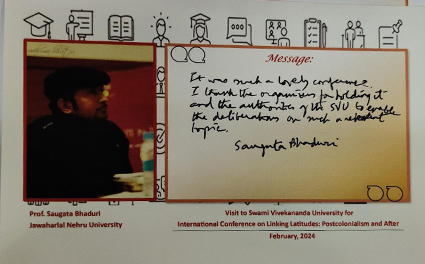 Message:
It was such a lovely conference.
I thank the organizers for holding it
and the authorities of the SVU to enable
the deliberations on such a relevant
topic.
Saugata Bhaduri
Prof. Saugata Bhaduri
Jawaharlal Nehru University
Visit to Swami Vivekananda University for
International Conference on Linking Latitudes: Postcolonialism and After
February, 2024